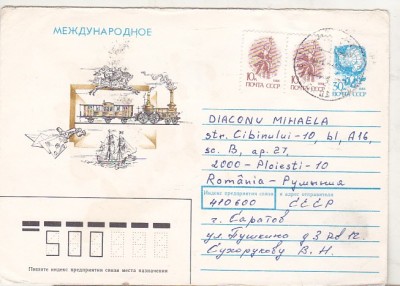 МЕЖДУНАРОДНОЕ
10к
ПОЧТА СССР
10к
ПОЧТА СССР
50к
ПОЧТА СССР
DIACONU MIHAELA
str. Cibinului-10, bl, A16,
sc. B, ap. 27,
2000 - Ploiesti - 10
România - Румыния
Индекс предприятия связи и адрес отправителя
410600 СССР
г. Саратов
ул. Пушкина д 3 кв.
Сухорукову В. Н.
500
Пишите индекс предприятия связи места назначения